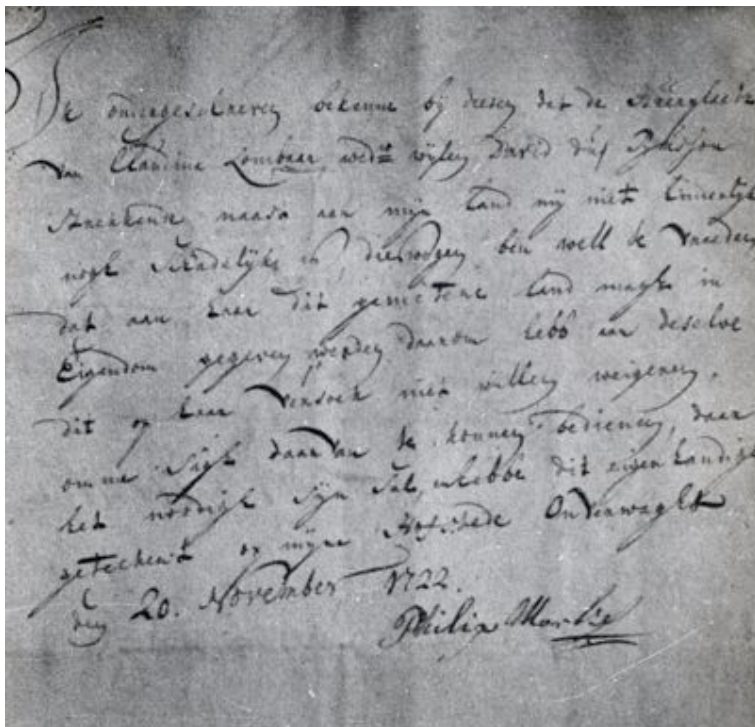 Ik ondergeschreven bekenne bij deesen dat de
van Claudina Lombaar, wede wijlen David du
streckende naast aan mijn land mij niet
nogh Schadelijk is, dieswegen ben well te vreeden
dat aan haar dit gemetene land magh in
Eigendom gegeven werden, daarom hebb aan deselve
dit op haar versoek niet willen weigeren,
omme sigh daar van te konnen bedienen, daar
het noodigh sijn sal, en hebbe dit eigenhandigh
geteekent op mijne Hofstede Ondervaght
den 20. November 1722.
Philip